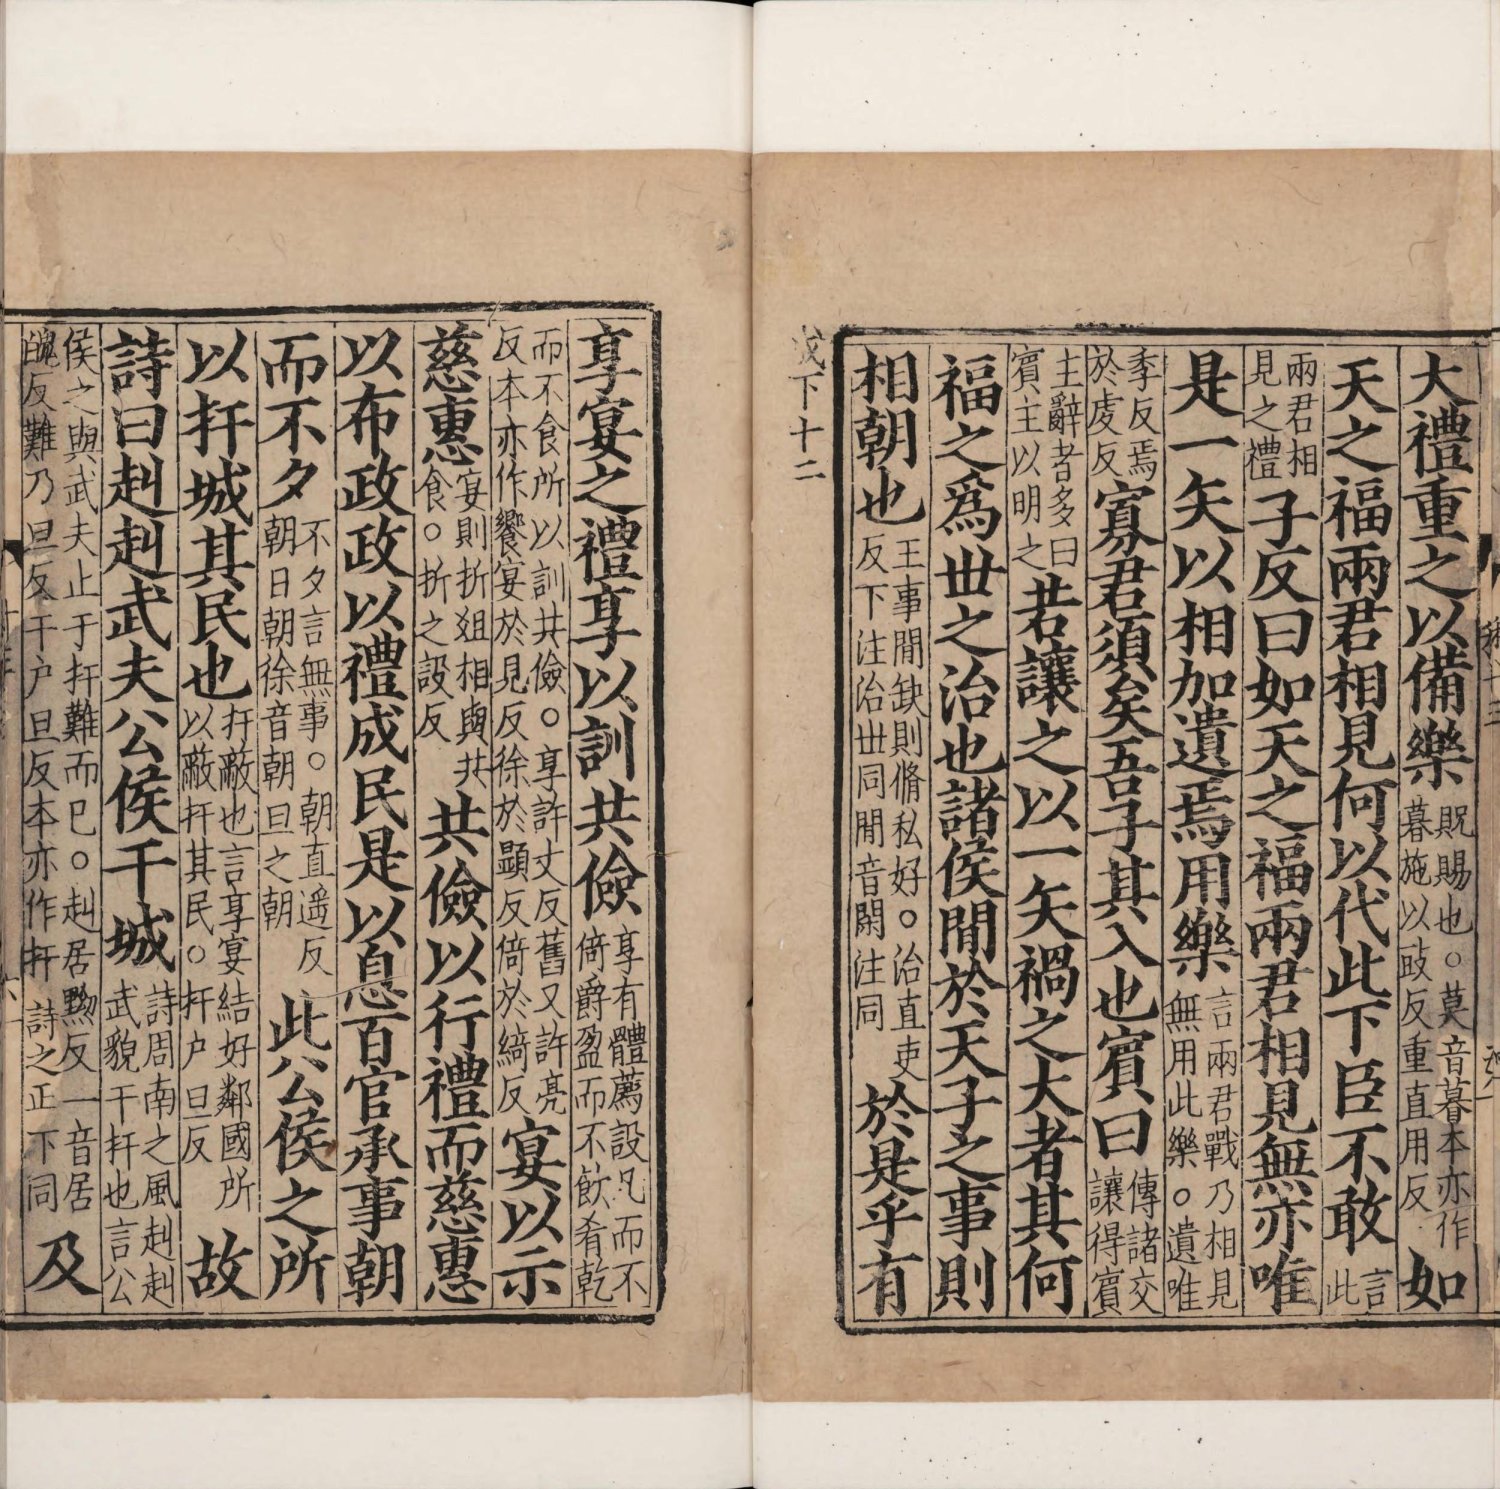 大禮重之以備樂貺賜也○莫音暮本亦作暮施以豉反重直用反如
天之福兩君相見何以代此下臣不敢言此
兩君相見之禮子反曰如天之福兩君相見無亦唯
是一矢以相加遺焉用樂言兩君戰乃相見無用此樂○遺唯
季反焉於虔反寡君須矣吾子其入也賓曰傳諸交讓得賓
主辭者多曰賓主以明之若讓之以一矢禍之大者其何
福之爲世之治也諸侯閒於天子之事則
相朝也王事閒缺則脩私好○治直吏反下注治世同閒音閑注同於是乎有
成下十二
享宴之禮享以訓共儉享有體薦設几而不倚爵盈而不飲肴乾
而不食所以訓共儉○享許丈反舊又許亮反本亦作饗宴於見反徐於顯反倚於綺反宴以示
慈惠宴則折俎相與共食○折之設反共儉以行禮而慈惠
以布政政以禮成民是以息百官承事朝
而不夕不夕言無事○朝直遥反朝日朝徐音朝旦之朝此公侯之所
以扞城其民也扞蔽也言享宴結好鄰國所以蔽扞其民○扞户旦反故
詩曰赳赳武夫公侯干城詩周南之風赳赳武貌干扞也言公
侯之與武夫止于扞難而已○赳居黝反一音居醜反難乃旦反干户旦反本亦作扞詩之正下同及